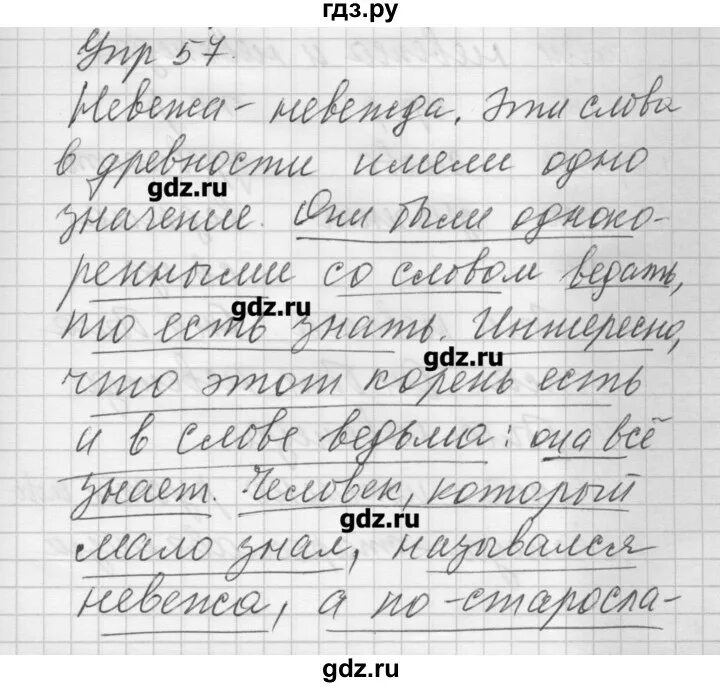 гдз.ру
Упр 57.
Невежа - невежда. Эти слова
в древности имели одно
gdz.ru
значение. Они были одноко-
ренными со словом ведать,
gdz.ru
то есть знать. Интересно,
gdz.ru
что этот корень есть
и в слове ведьма: она всё
знает. Человек, который
gdz.ru
мало знал, назывался
невежа, а по-старосла-
gdz.ru